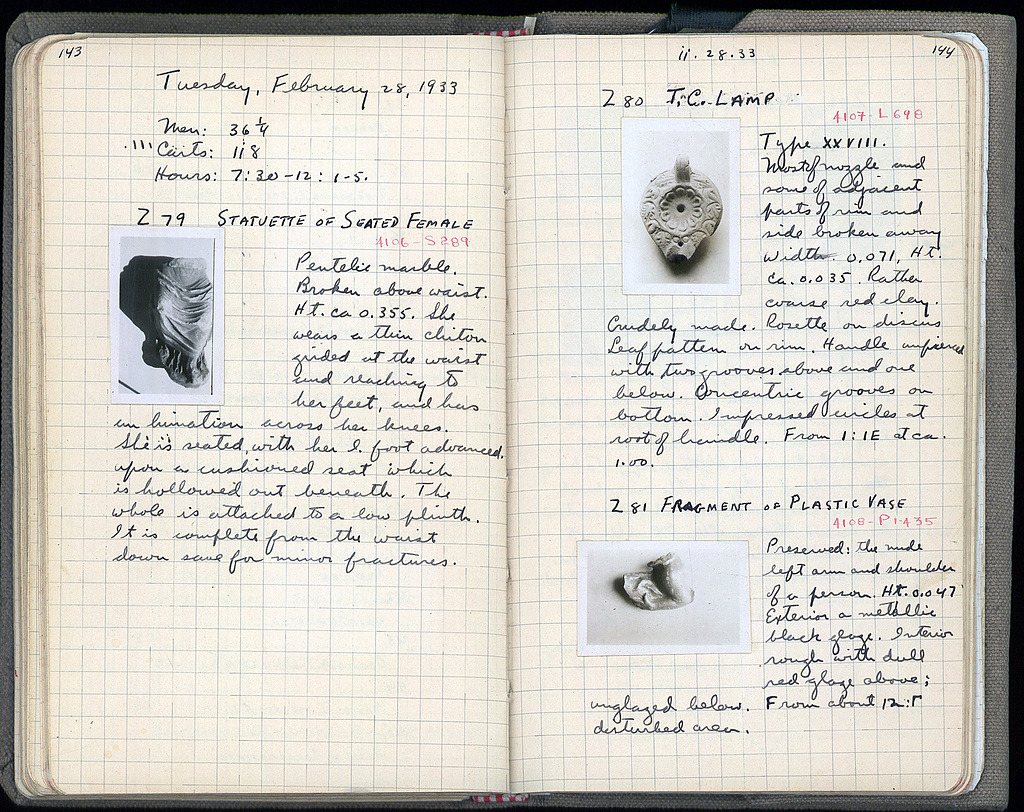 143
Tuesday, February 28, 1933
Men: 36 1/4
Carts: 118
Hours: 7:30-12: 1-5.
Z 79 STATUETTE OF SEATED FEMALE
4106-S289
Pentelic marble.
Broken above waist.
Ht. ca 0.355. She
wears a thin chiton
girded at the waist
and reaching to
her feet, and has
an himation across her knees.
She is seated, with her l. foot advanced,
upon a cushioned seat which
is hollowed out beneath. The
whole is attached to a low plinth.
It is complete from the waist
down save for minor fractures.
ii.28.33
144
Z 80 T.C. LAMP
4107-L698
Type XXVIII.
Most of nozzle and
some of adjacent
parts of rim and
side broken away
Width. 0.071, Ht.
ca. 0.035. Rather
coarse red clay.
Crudely made. Rosette on discus
Leaf pattern on rim. Handle unpierced
with two grooves above and one
below. Concentric grooves on
bottom. Impressed circles at
root of handle. From 1:1E at ca.
1.00.
Z 81 FRAGMENT OF PLASTIC VASE
4108-P1435
Preserved: the nude
left arm and shoulder
of a person. Ht. 0.047
Exterior a metallic
black glaze. Interior
rough with dull
red glaze above;
unglazed below. From about 12:Γ
disturbed area.